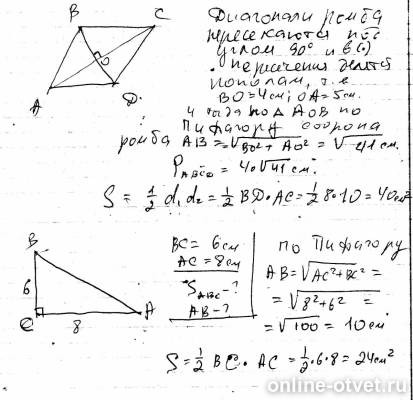 B C
O
A D
Диагонали ромба
пересекаются под
углом 90° и в (·)
пересечения делятся
пополам, т.е
BO=4см; OA=5см.
тогда по Δ AOB по
Пифагору сторона
ромба AB=√BO²+AO² = √41 см.
P_ABCD = 4·√41 см.
S = 1/2 d₁d₂ = 1/2 BD·AC = 1/2 8·10 = 40см²
B
6
C 8 A
BC = 6см
AC = 8см
S_ABC - ?
AB - ?
по Пифагору
AB=√AC²+BC² =
=√8²+6² =
=√100 = 10см
S = 1/2 BC · AC = 1/2·6·8 = 24см²
online-otvet.ru